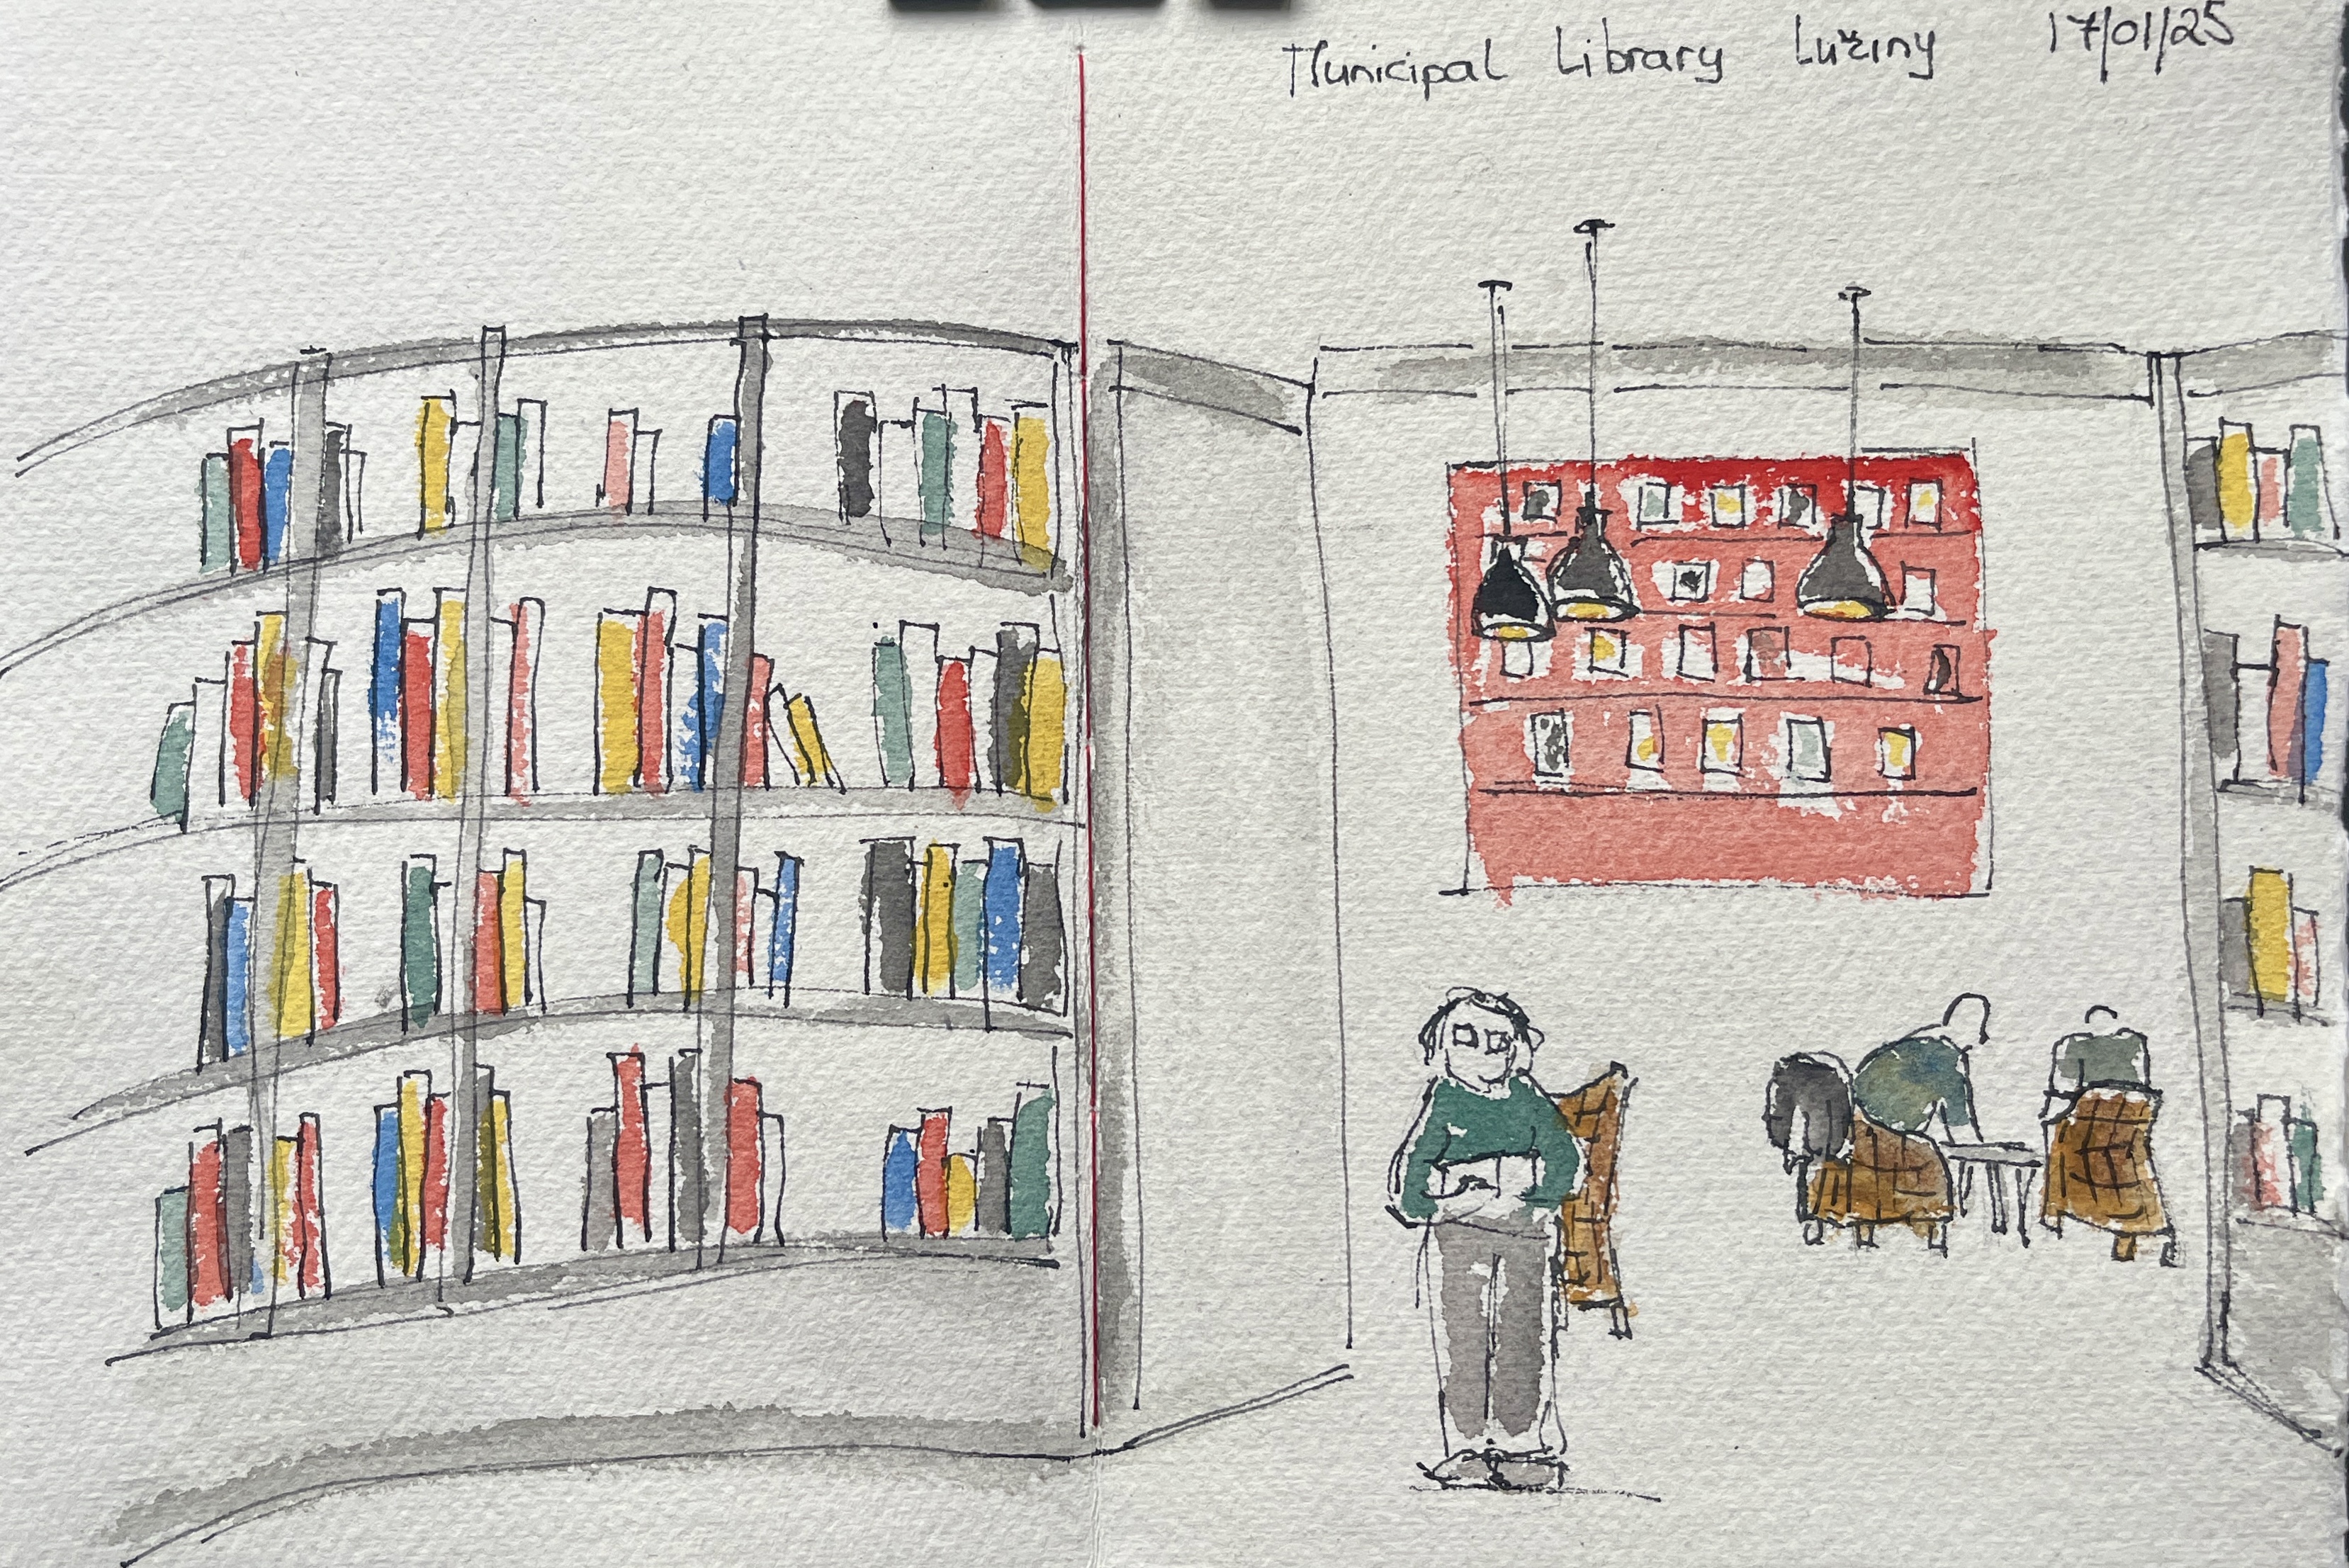 Municipal Library Lužiny 17/01/25